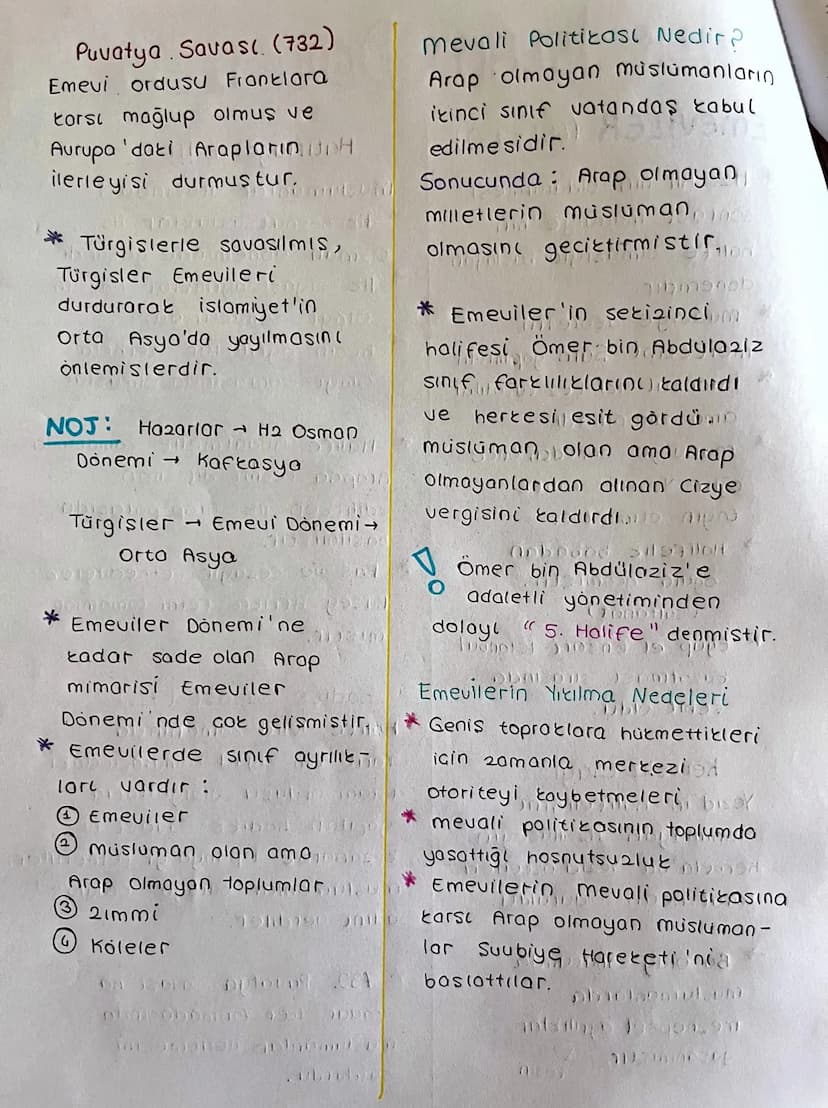 Puvatya Savası (732)
Emevi ordusu Franklara
karsı mağlup olmus ve
Avrupa'daki Arapların
ilerleyisi durmustur.
* Türgislerle savasılmıs,
Türgisler Emevileri
durdurarak islamiyet'in
Orta Asya'da yayılmasını
önlemislerdir.
NOT: Hazarlar → Hz Osman
Dönemi → Kafkasya
Türgisler → Emevi Dönemi →
Orta Asya
* Emeviler Dönemi'ne
kadar sade olan Arap
mimarisi Emeviler
Dönemi'nde cok gelismistir.
* Emevilerde sınıf ayrılık-
ları vardır :
① Emeviler
② müsluman olan ama
Arap olmayan toplumlar
③ zımmi
④ Köleler
mevali Politikası Nedir?
Arap olmayan müslümanların
ikinci sınıf vatandas kabul
edilmesidir.
Sonucunda : Arap olmayan
milletlerin müsluman
olmasını geciktirmistir.
* Emeviler'in sekizinci
halifesi Ömer bin Abdulaziz
sınıf farklılıklarını kaldırdı
ve herkesi esit gördü.
müsluman olan ama Arap
olmayanlardan alınan Cizye
vergisini kaldırdı.
! Ömer bin Abdülaziz'e
adaletli yönetiminden
dolayı "5. Halife" denmistir.
Emevilerin Yıkılma Nedeleri
* Genis topraklara hükmettikleri
icin zamanla merkezi
otoriteyi kaybetmeleri
* mevali politikasının toplumda
yasattığı hosnutsuzluk
* Emevilerin mevali politikasına
karsı Arap olmayan müsluman-
lar Suubiye Hareketi'ni
baslattılar.